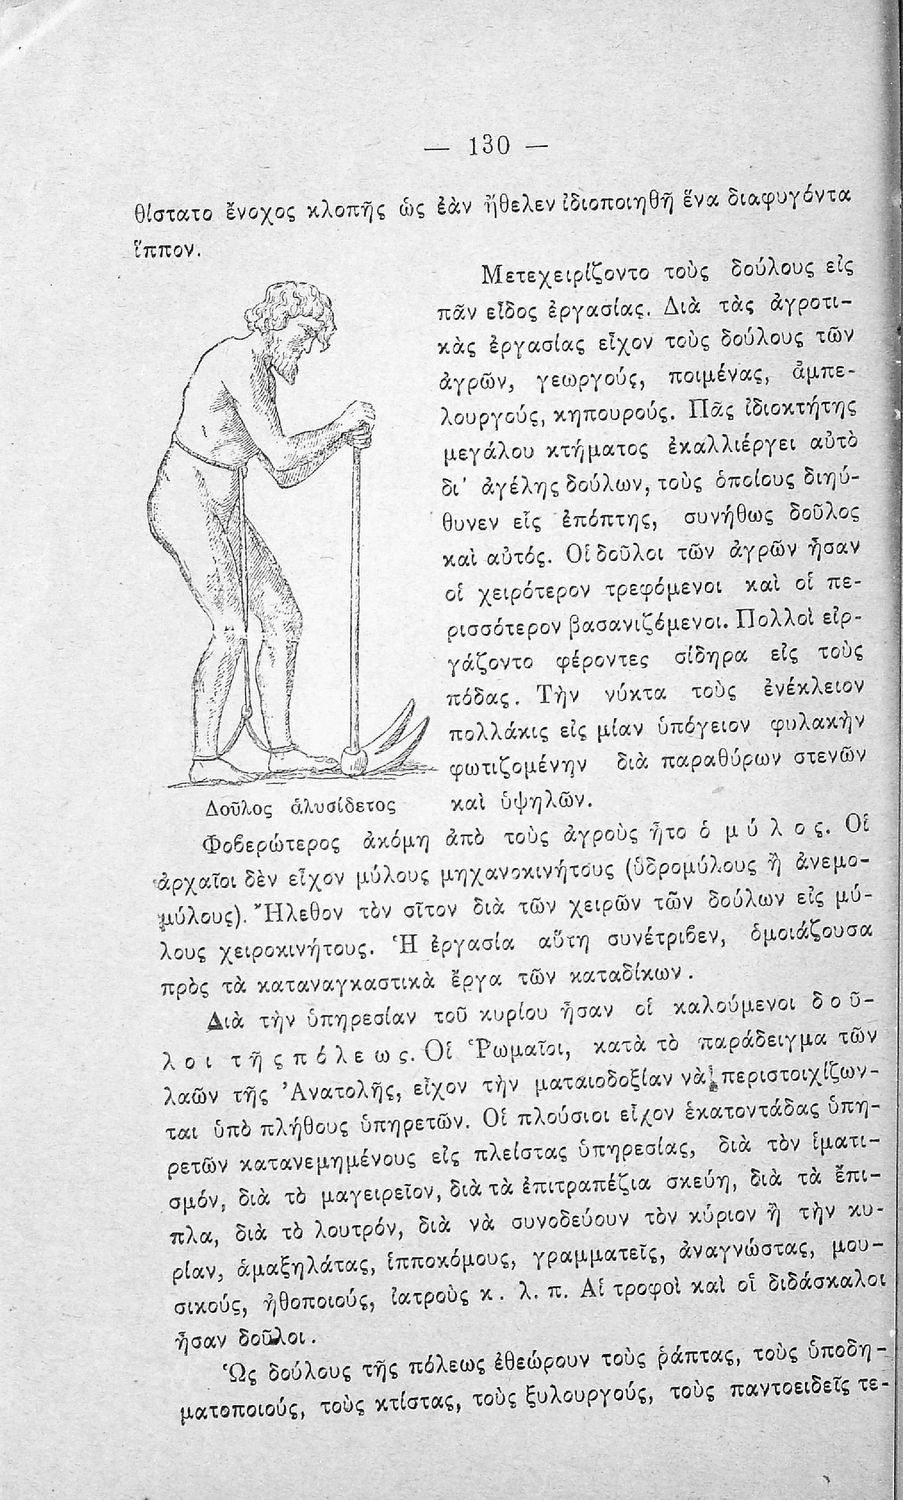 — 130 —
θίστατο ἔνοχος κλοπῆς ὡς ἐὰν ἤθελεν ἰδιοποιηθῆ ἕνα διαφυγόντα
ἵππον.
Μετεχειρίζοντο τοὺς δούλους εἰς
πᾶν εἶδος ἐργασίας. Διὰ τὰς ἀγροτι-
κὰς ἐργασίας εἶχον τοὺς δούλους τῶν
ἀγρῶν, γεωργούς, ποιμένας, ἀμπε-
λουργούς, κηπουρούς. Πᾶς ἰδιοκτήτης
μεγάλου κτήματος ἐκαλλιέργει αὐτὸ
δι' ἀγέλης δούλων, τοὺς ὁποίους διηύ-
θυνεν εἷς ἐπόπτης, συνήθως δοῦλος
καὶ αὐτός. Οἱ δοῦλοι τῶν ἀγρῶν ἦσαν
οἱ χειρότερον τρεφόμενοι καὶ οἱ πε-
ρισσότερον βασανιζόμενοι. Πολλοὶ εἰρ-
γάζοντο φέροντες σίδηρα εἰς τοὺς
πόδας. Τὴν νύκτα τοὺς ἐνέκλειον
πολλάκις εἰς μίαν ὑπόγειον φυλακὴν
φωτιζομένην διὰ παραθύρων στενῶν
καὶ ὑψηλῶν.
Δοῦλος ἁλυσίδετος
Φοβερώτερος ἀκόμη ἀπὸ τοὺς ἀγροὺς ἦτο ὁ μ ύ λ ο ς. Οἱ
ἀρχαῖοι δὲν εἶχον μύλους μηχανοκινήτους (ὑδρομύλους ἢ ἀνεμο-
μύλους). Ἤλεθον τὸν σῖτον διὰ τῶν χειρῶν τῶν δούλων εἰς μύ-
λους χειροκινήτους. Ἡ ἐργασία αὕτη συνέτριβεν, ὁμοιάζουσα
πρὸς τὰ καταναγκαστικὰ ἔργα τῶν καταδίκων.
Διὰ τὴν ὑπηρεσίαν τοῦ κυρίου ἦσαν οἱ καλούμενοι δ ο ῦ-
λ ο ι τ ῆ ς π ό λ ε ω ς. Οἱ Ῥωμαῖοι, κατὰ τὸ παράδειγμα τῶν
λαῶν τῆς Ἀνατολῆς, εἶχον τὴν ματαιοδοξίαν νὰ περιστοιχίζων-
ται ὑπὸ πλήθους ὑπηρετῶν. Οἱ πλούσιοι εἶχον ἑκατοντάδας ὑπη-
ρετῶν κατανεμημένους εἰς πλείστας ὑπηρεσίας, διὰ τὸν ἱματι-
σμόν, διὰ τὸ μαγειρεῖον, διὰ τὰ ἐπιτραπέζια σκεύη, διὰ τὰ ἔπι-
πλα, διὰ τὸ λουτρόν, διὰ νὰ συνοδεύουν τὸν κύριον ἢ τὴν κυ-
ρίαν, ἁμαξηλάτας, ἱπποκόμους, γραμματεῖς, ἀναγνώστας, μου-
σικούς, ἠθοποιούς, ἰατροὺς κ. λ. π. Αἱ τροφοὶ καὶ οἱ διδάσκαλοι
ἦσαν δοῦλοι.
Ὡς δούλους τῆς πόλεως ἐθεώρουν τοὺς ῥάπτας, τοὺς ὑποδη-
ματοποιούς, τοὺς κτίστας, τοὺς ξυλουργούς, τοὺς παντοειδεῖς τε-